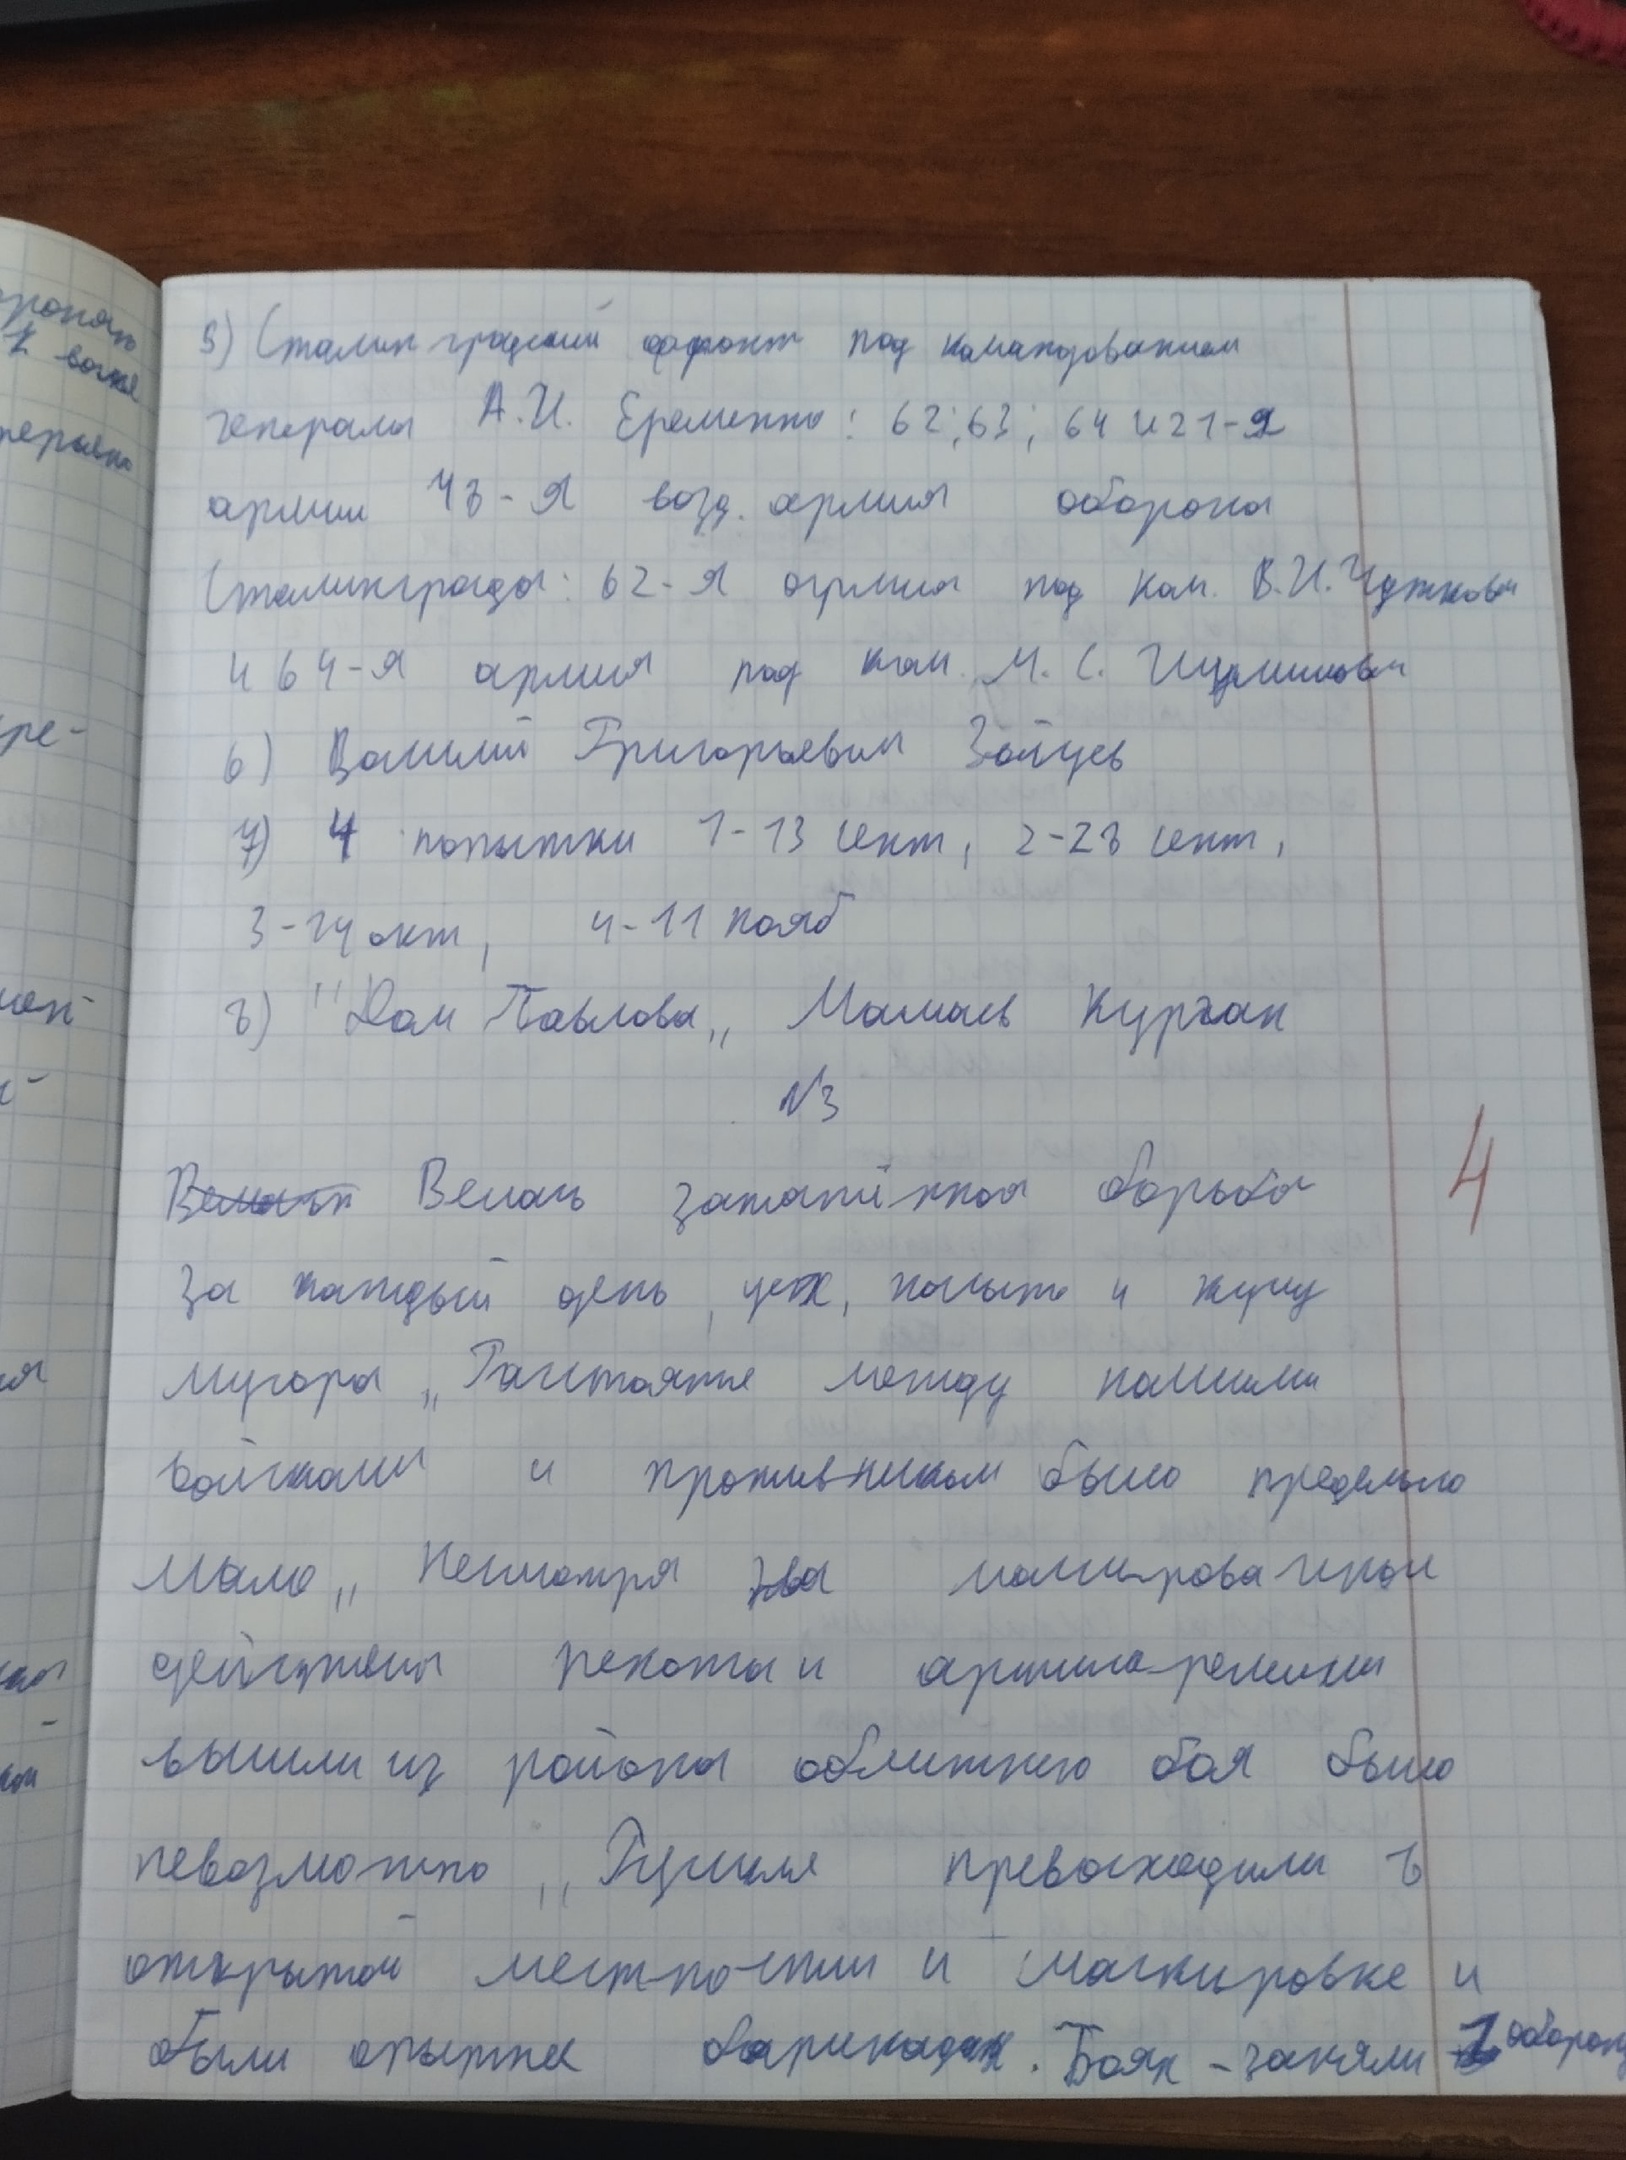 5) Сталинградский фронт под командованием
генерала А.И. Еременко: 62; 63; 64 и 21-я
армии 43-я возд. армия оборона
Сталинграда: 62-я армия под ком. В.И. Чуткова
и 64-я армия под ком. М.С. Шумилова
6) Василий Григорьевич Зайцев
7) 4 попытки 1-13 сент, 2-23 сент,
3-14 окт, 4-11 нояб
8) "Дом Павлова„ Мамаев Курган
№3
Велась зататённая борьба
за каждый день, цех, и кучу
мусора „Растояние между нашими
войсками и противником было предельно
мало„ Несмотря на
действия пехоты и
вышли из района ближнего боя было
невозможно „Русские превосходили в
открытой местности и маскировке и
были опытнее барикадах. Боях - заняли оборону